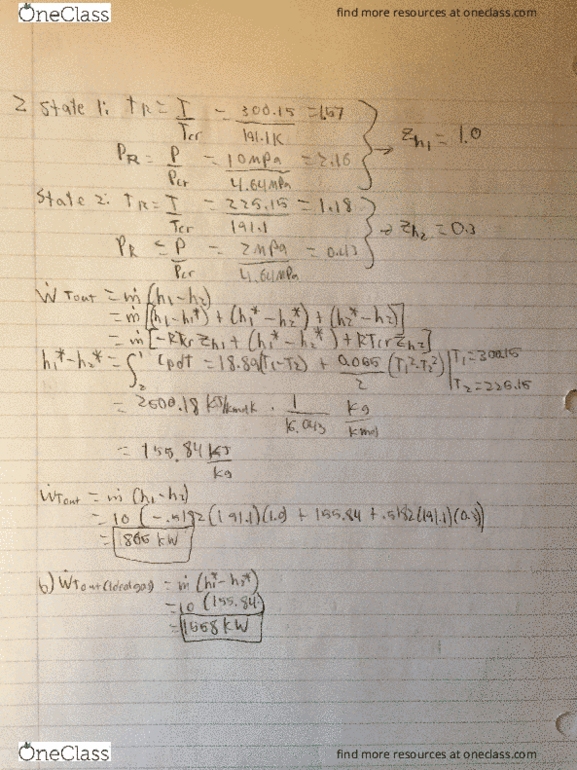 OneClass
find more resources at oneclass.com
2 State 1: TR = T/Tcr = 300.15/191.1K = 1.57
PR = P/Pcr = 10MPa/4.64MPa = 2.16
→ Zh1 = 1.0
State 2: TR = T/Tcr = 225.15/191.1 = 1.18
PR = P/Pcr = 2MPa/4.64MPa = 0.43
→ Zh2 = 0.3
ẆTout = ṁ(h1-h2)
= ṁ[(h1-h1*) + (h1*-h2*) + (h2*-h2)]
= ṁ[-RTcr Zh1 + (h1*-h2*) + RTcr Zh2]
h1*-h2* = ∫ CpdT = 18.89(T1-T2) + 0.055/2 (T1²-T2²) | T1=300.15
T2=225.15
= 2500.18 KJ/kmolk · 1/16.043 kg/kmol
= 155.84 KJ/kg
ẆTout = ṁ(h1-h2)
= 10(-.5182(191.1)(1.0) + 155.84 + .5182(191.1)(0.3))
= 865 kW
b) ẆTout(Ideal gas) = ṁ(h1*-h2*)
= 10(155.84)
= 1558 kW
OneClass
find more resources at oneclass.com